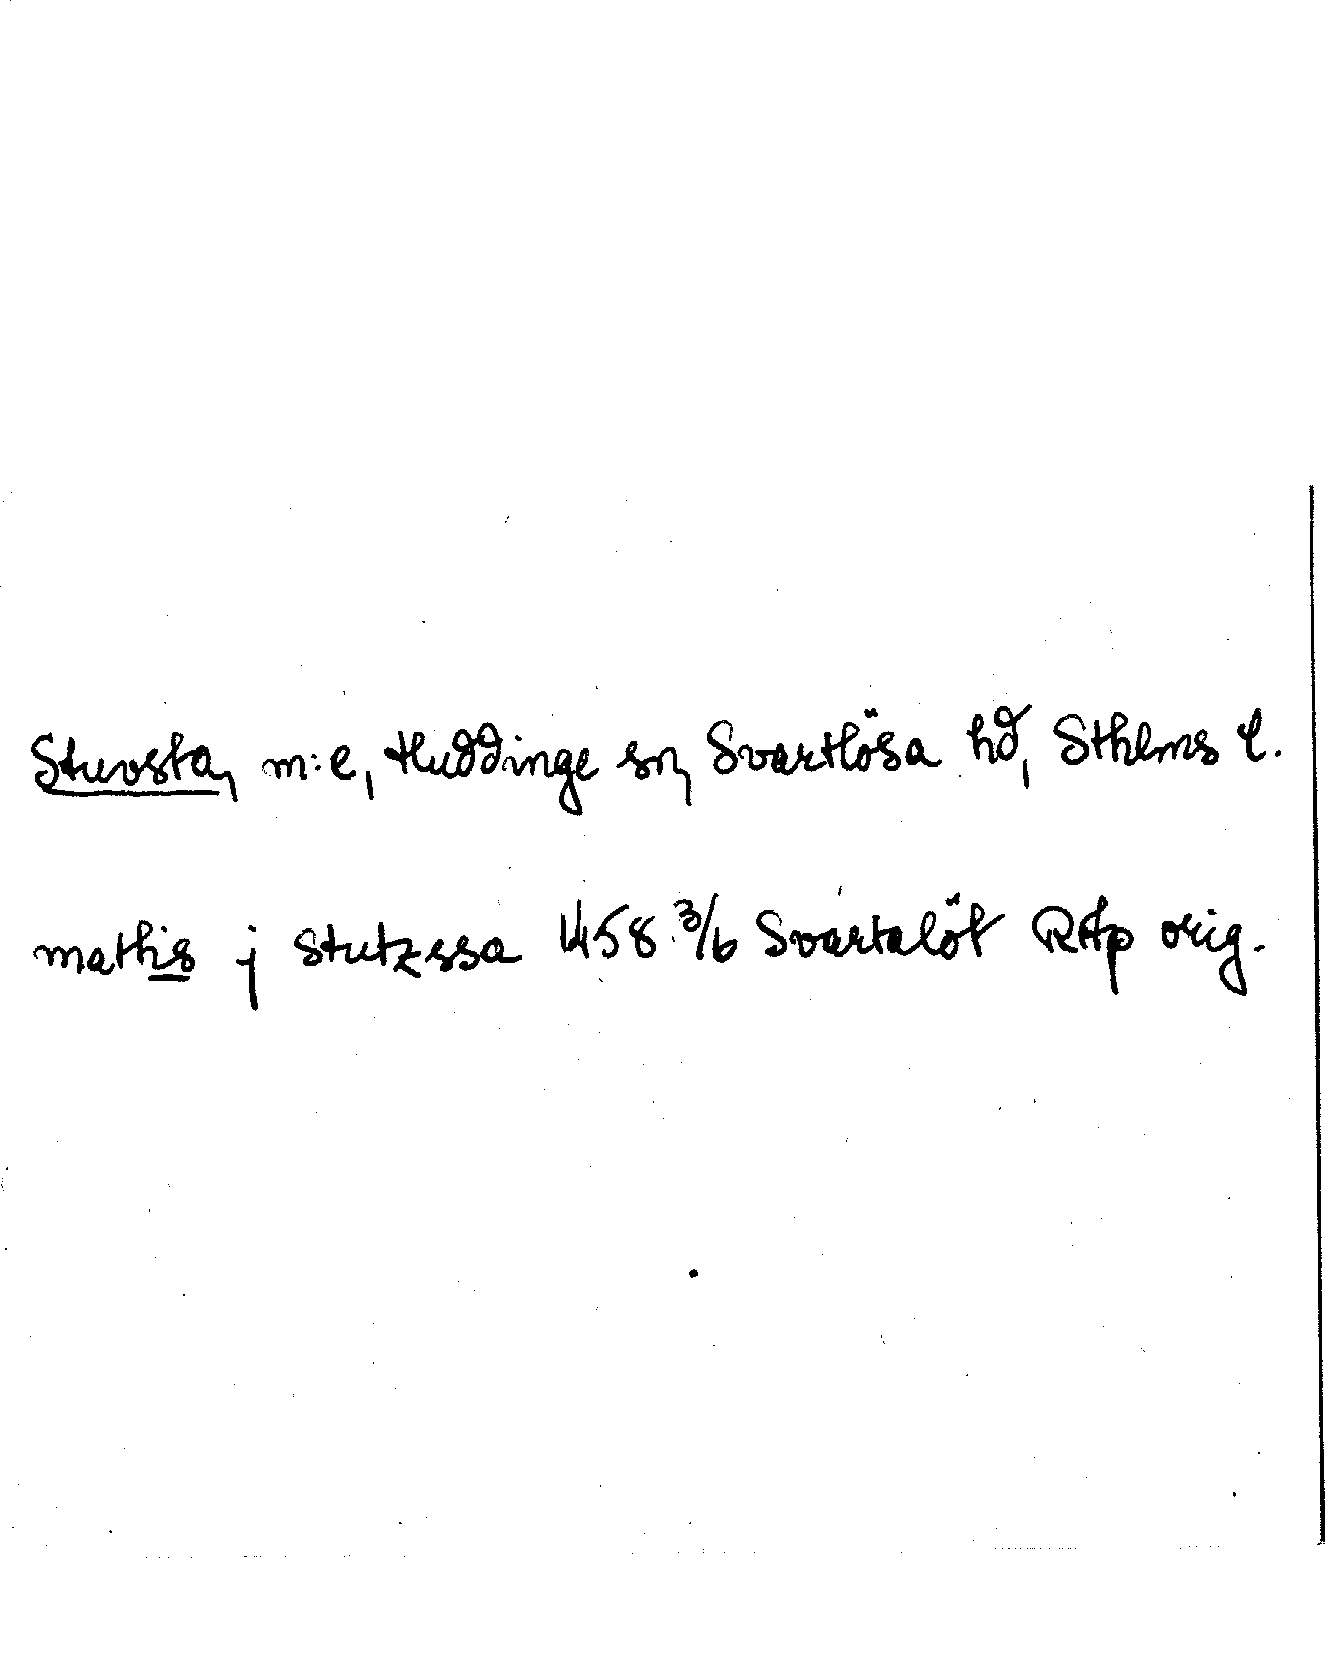 Stuvsta, m:e, Huddinge sn, Svartlösa hd, Sthlms l.
mathis j stutzssa 1458 3/6 Svartalöt RAp orig.